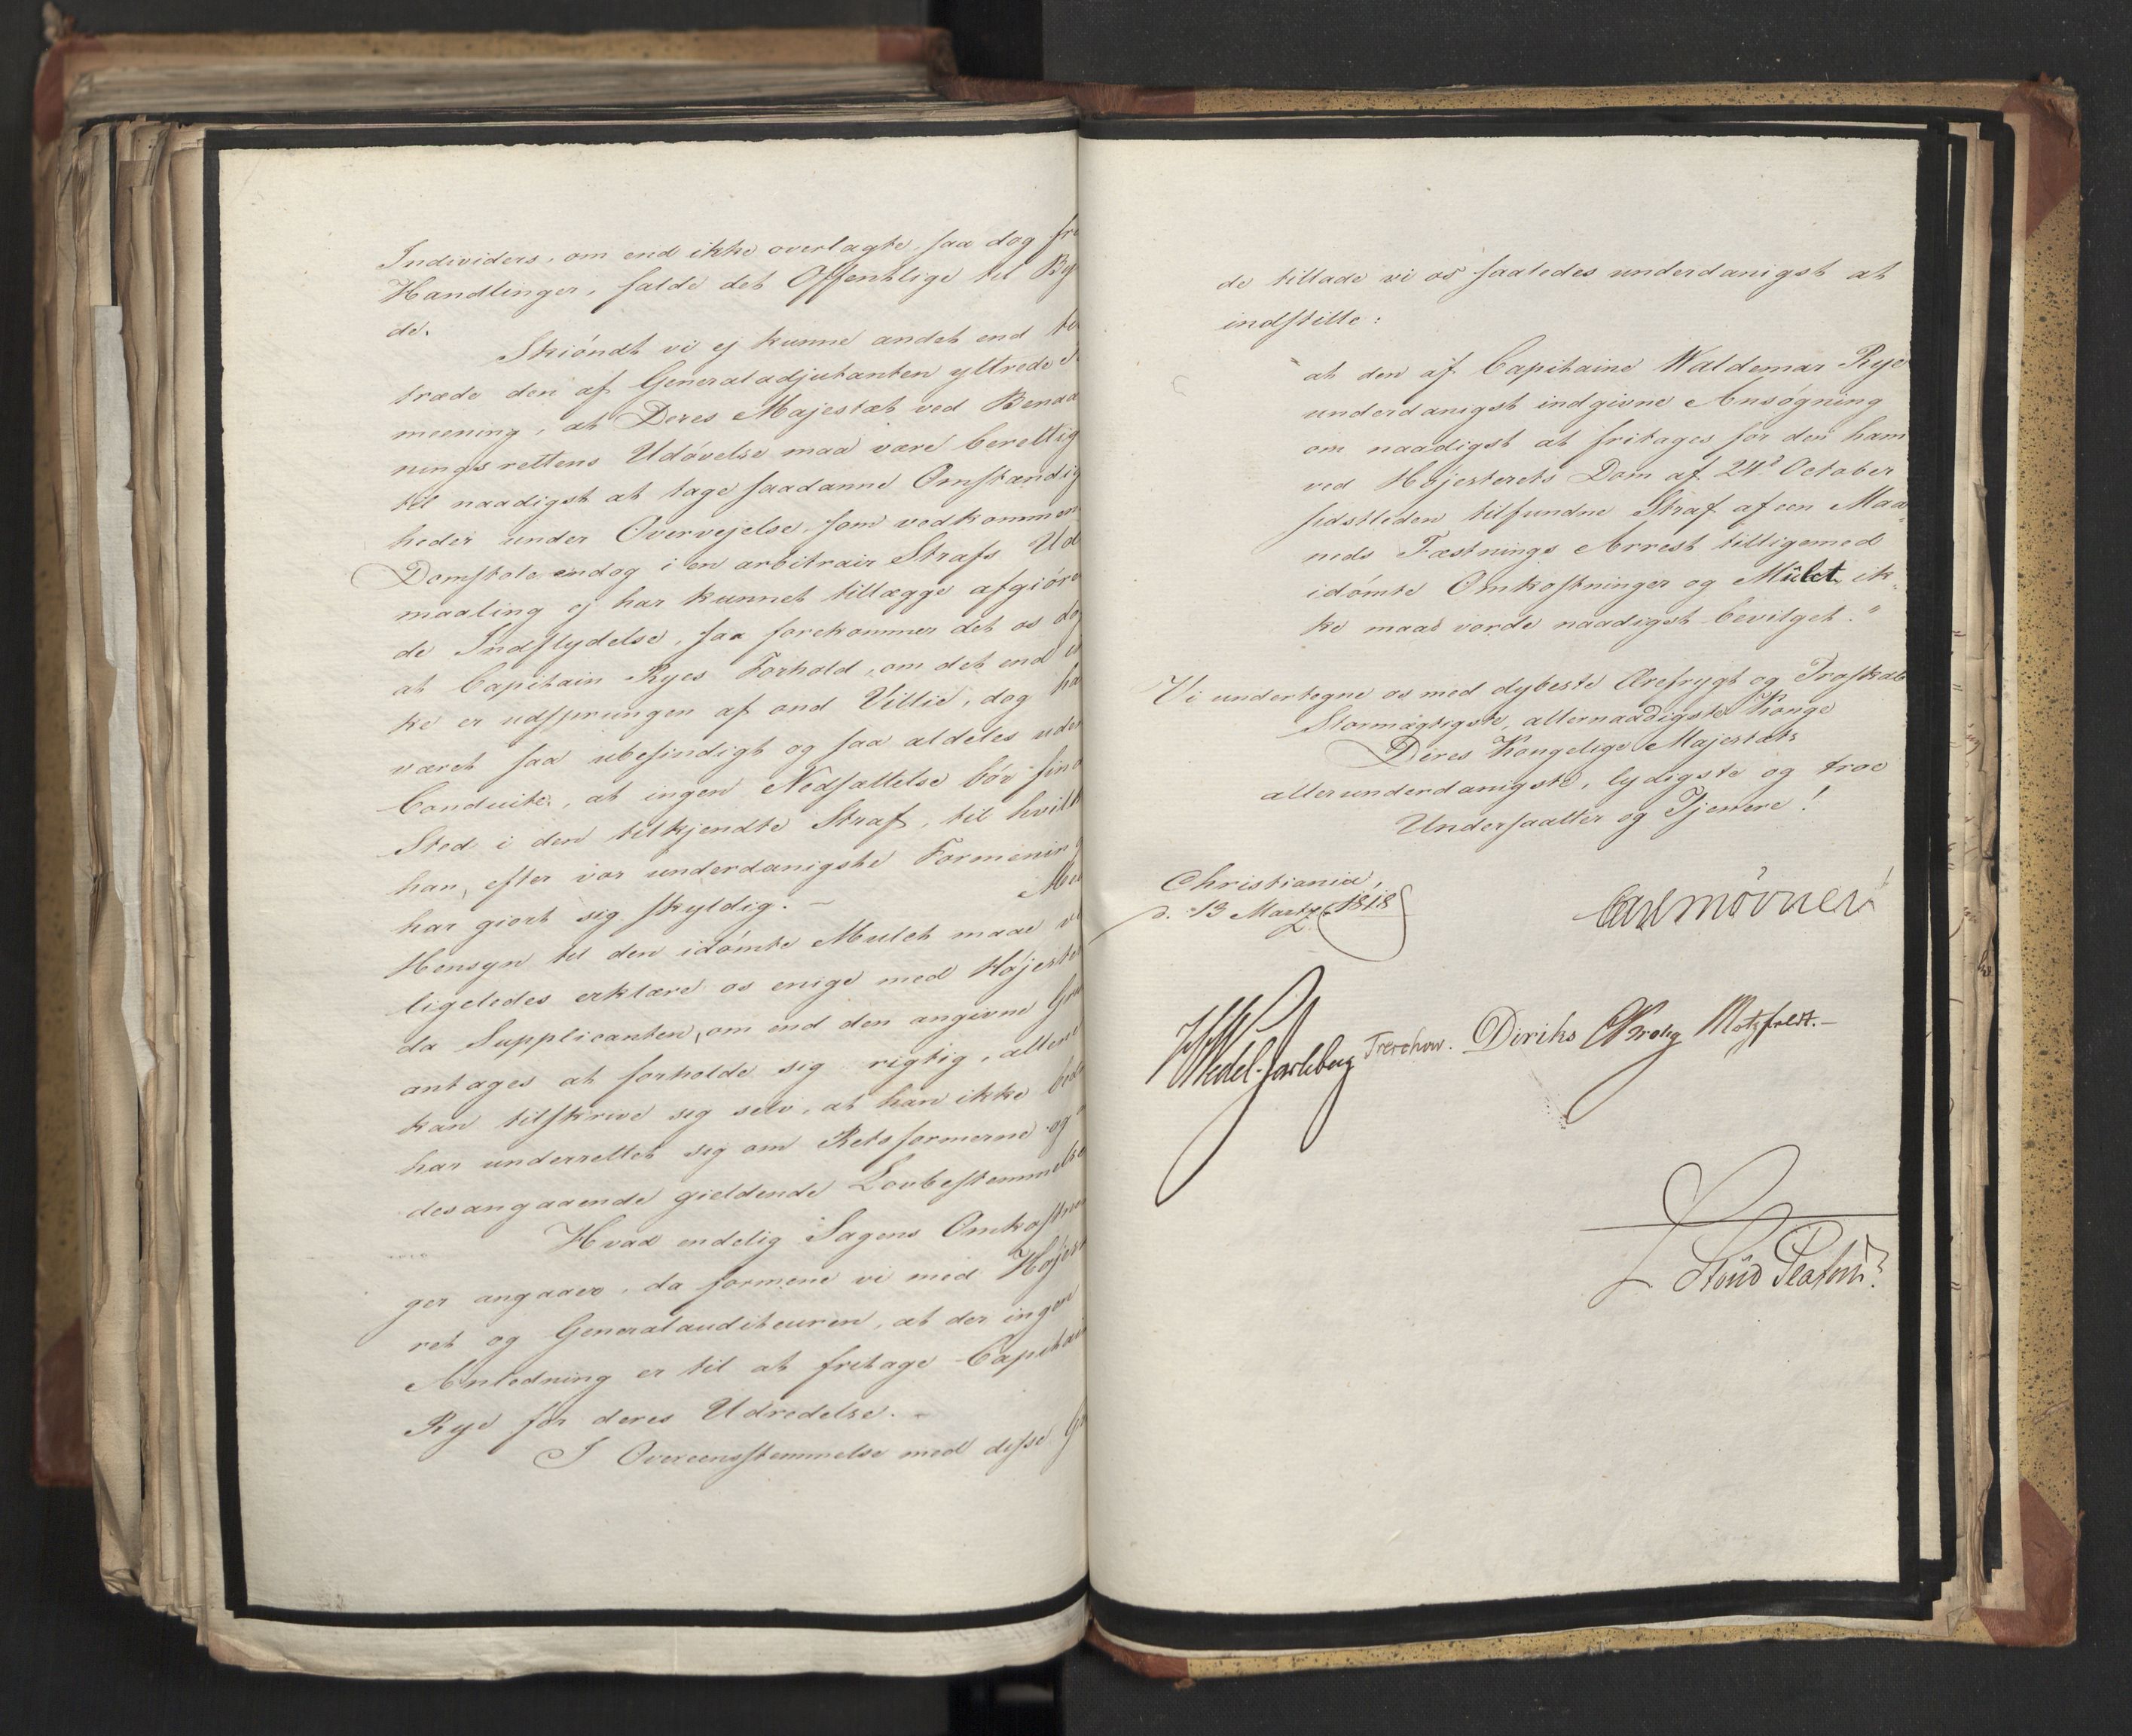 Individers, om end ikke overlagte, saa dog fre
Handlinger, falde det Offentlige til By
de.
Skiöndt vi ej kunne andet end til
træde den af Generaladjutanten yttrede
meening, at Deres Majestæt ved Benaa
ningsrettens Udövelse maa være berettig
til naadigst at tage saadanne Omstændig
heder under Overvejelse, som vedkommen
Domstole endog i en arbitrair Strafs Ud
maaling ej har kunnet tillægge afgiören
de Indflydelse, saa forekommer det os dog
at Capitain Ryes Forhold, om det end ik
ke er udsprungen af ond Villie, dog ha
været saa ubesindigt og saa aldeles uden
Conduite, at ingen Nedsættelse bör find
Sted i den tilkjendte Straf, til hvilk
han, efter vor underdanigste Formening
har giort sig skyldig. – Med
Hensyn til den idömte Mulct maae vi
ligeledes erklære os enige med Höjester
da Supplicanten, om end den angivne Gru
antages at forholde sig rigtig, allene
kan tilskrive sig selv, at han ikke bed
har underrettet sig om Retsformerne og
desangaaende gieldende Lovbestemmelse
Hvad endelig Sagens Omkostnin
ger angaaer, da formene vi med Höjest
ret og Generalauditeuren, at der ingen
Anledning er til at fritage Capitain
Rye for deres Udredelse. –
I Overeensstemmelse med disse Gru
de tillade vi os saaledes underdanigst at
indstille:
at den af Capitaine Waldemar Rye
underdanigst indgivne Ansögning
om naadigst at fritages for den ham
ved Höjesterets Dom af 24d October
sidstleden tilfundne Straf af een Maa
neds Fæstnings Arrest tilligemed
idömte Omkostninger og Mulct ik
ke maae vorde naadigst bevilget."
Vi undertegne os med dybeste Ærefrygt og Troskab
Stormægtigste, allernaadigste Konge
Deres Kongelige Majestæts
allerunderdanigste, lydigste og troe
Undersaatter og Tjenere!
Christiania,
d. 13 Martz 1818
Carl Mörner
Wedel-Jarlsberg Treschow. Diriks Krohg Motzfeldt.–